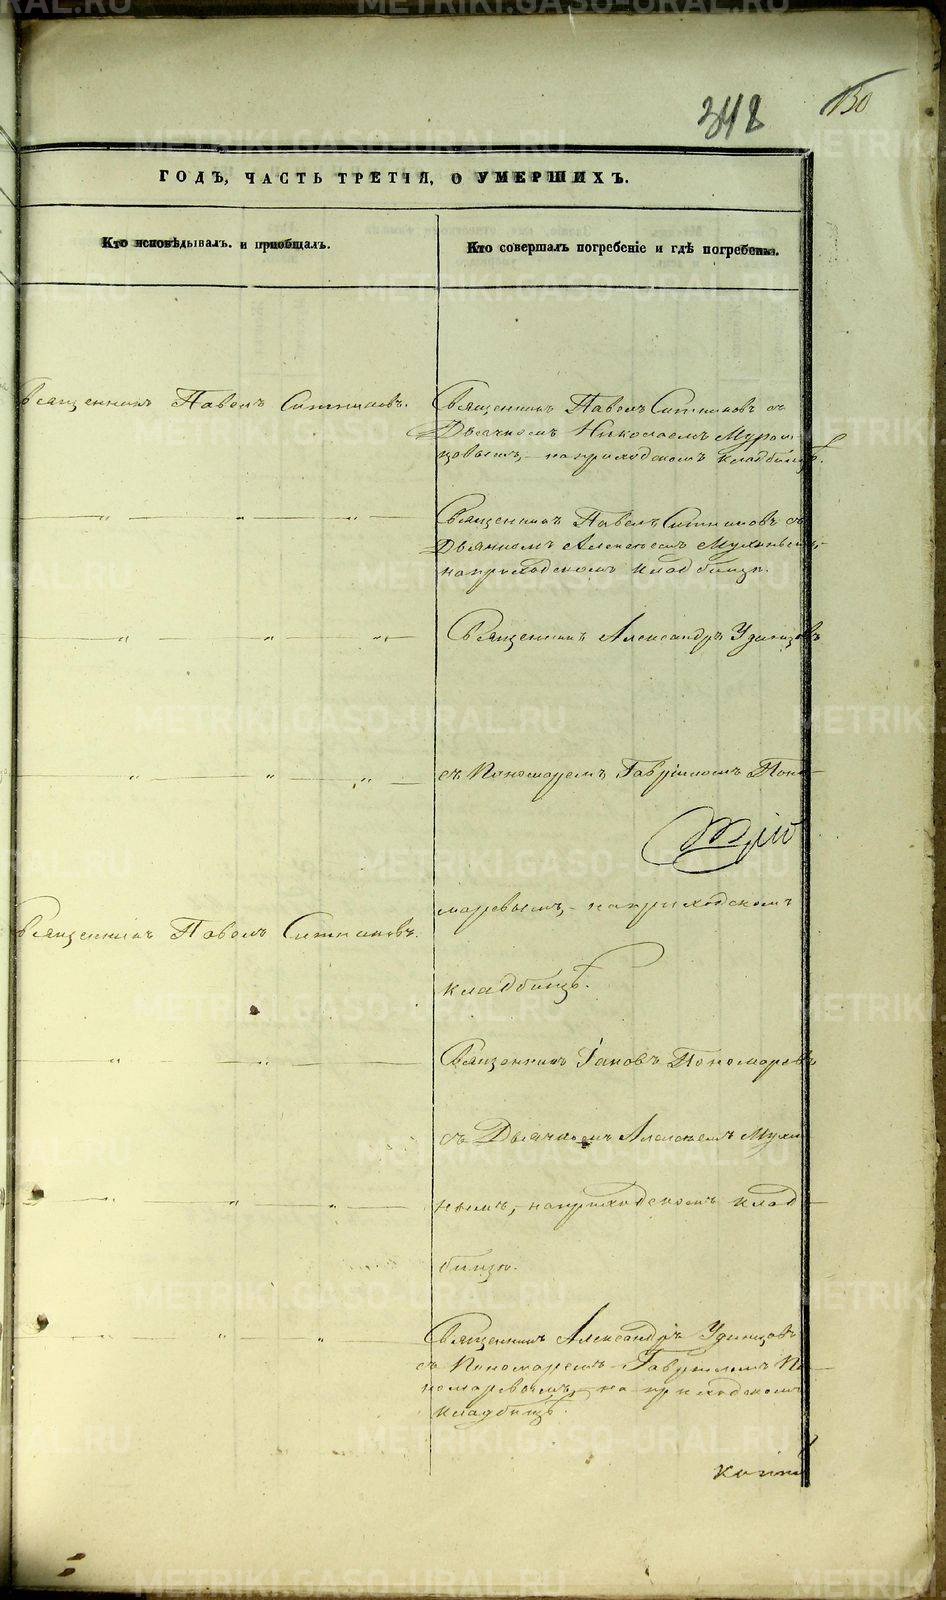 348
130
ГОДЪ, ЧАСТЬ ТРЕТІЯ, О УМЕРШИХЪ.
Кто исповѣдывалъ и пріобщалъ.
Кто совершалъ погребеніе и гдѣ погребены.
Священникъ Павелъ Ситниковъ.
Священникъ Павелъ Ситниковъ съ
Дьячкомъ Николаемъ Муром-
цовымъ, на приходскомъ кладбищѣ.
— „ — „ — „ —
Священникъ Павелъ Ситниковъ съ
Дьячкомъ Алексѣемъ Мухинымъ,
на приходскомъ кладбищѣ.
— „ — „ — „ —
Священникъ Александръ Удинцовъ
— „ — „ — „ —
съ Пономаремъ Гавріиломъ Поно-
маревымъ, на приходскомъ
Священникъ Павелъ Ситниковъ.
кладбищѣ.
— „ — „ —
Священникъ Іаковъ Пономаревъ
съ Дьячкомъ Алексѣемъ Мухи-
— „ — „ — „ —
нымъ, на приходскомъ клад-
бищѣ.
— „ — „ — „ —
Священникъ Александръ Удинцовъ
съ Пономаремъ Гавріиломъ По-
номаревымъ, на приходскомъ
кладбищѣ.
METRIKI.GASO-URAL.RU